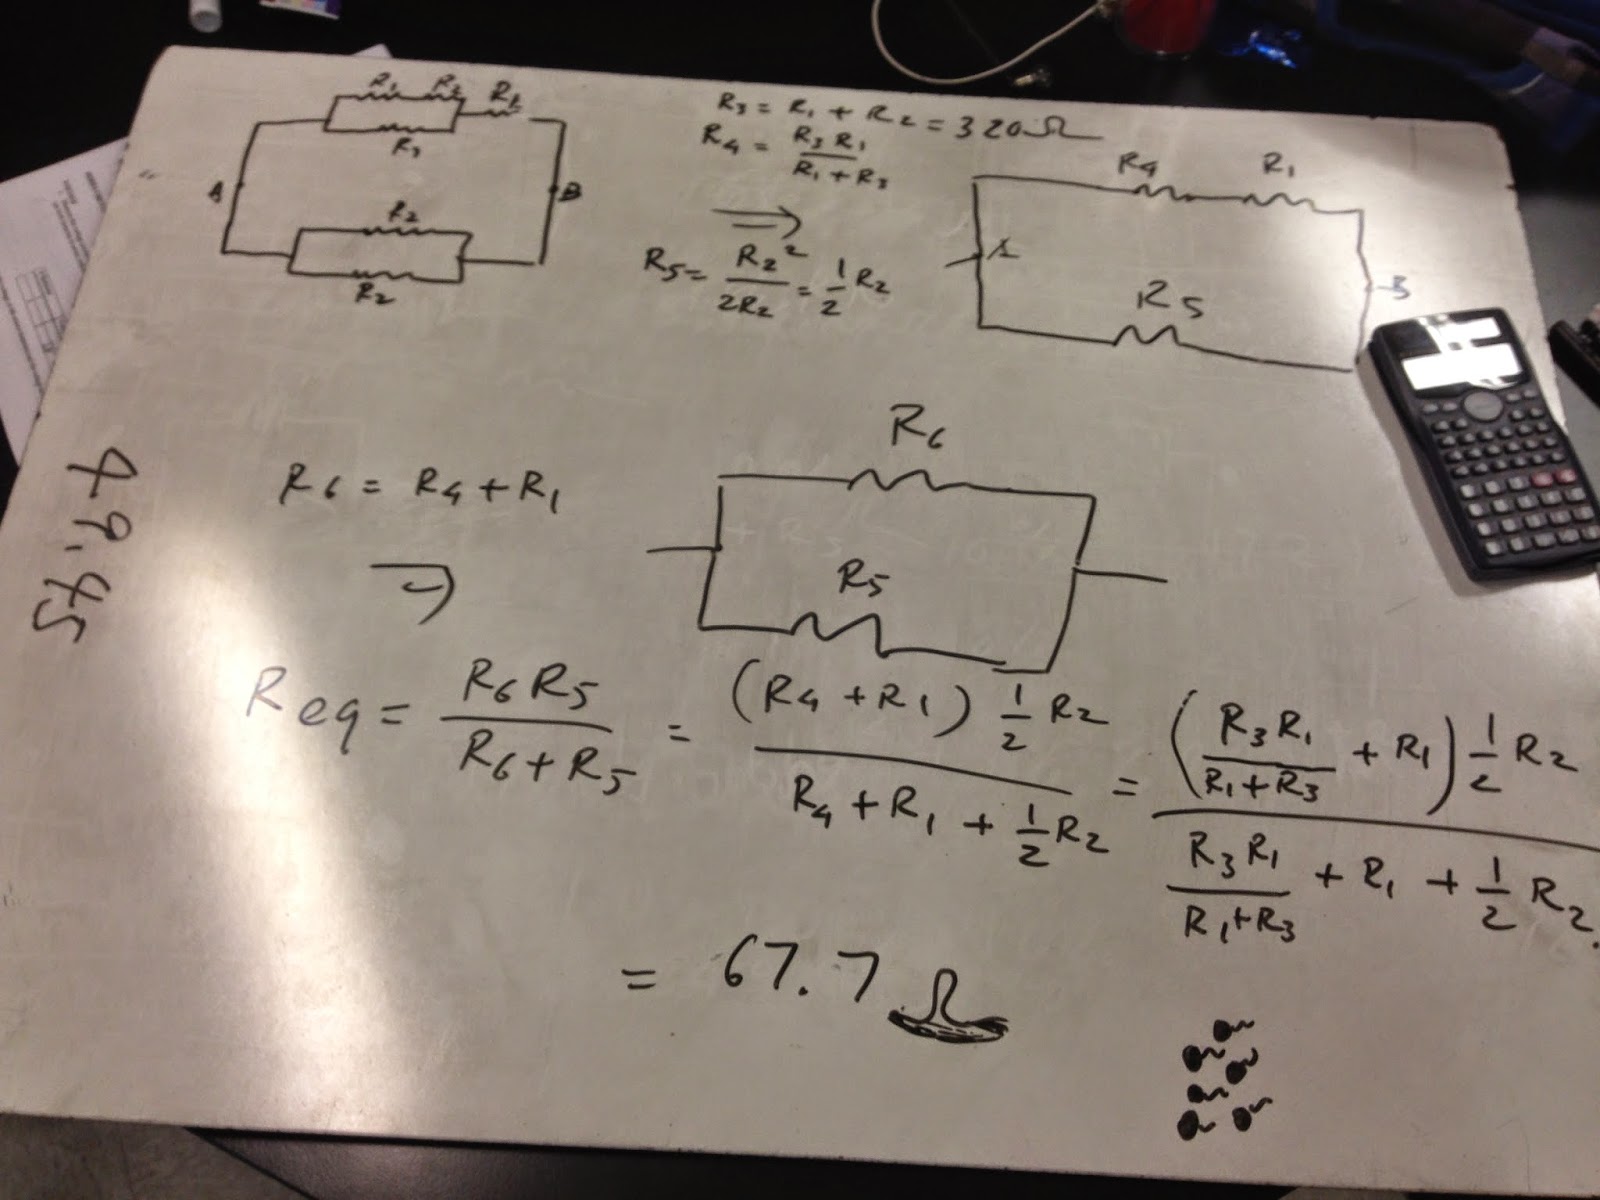 R1 R2 R1
R3
A
B
R2
R2
R3 = R1 + R2 = 320Ω
R4 = R3 R1 / R1 + R3
⇒
R5 = R2² / 2R2 = 1/2 R2
R4 R1
A
B
R5
49.45
R6 = R4 + R1
R6
R5
Req = R6 R5 / R6 + R5 = (R4 + R1) 1/2 R2 / R4 + R1 + 1/2 R2 = (R3 R1 / R1 + R3 + R1) 1/2 R2 / R3 R1 / R1 + R3 + R1 + 1/2 R2.
= 67.7 Ω